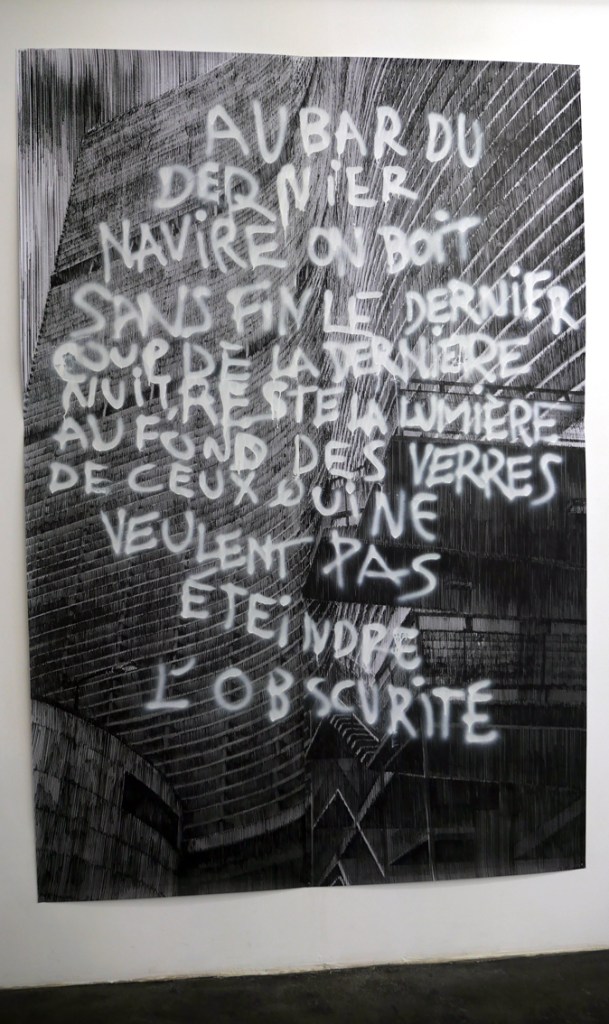 AU BAR DU
DERNiER
NAViRE ON BOiT
SANS FiN LE DERNiER
COUP DE LA DERNIÈRE
NUIT, RESTE LA LUMIÈRE
AU FOND DES VERRES
DE CEUX QUi NE
VEULENT PAS
ÉTEiNDRE
L'OBSCURiTÉ